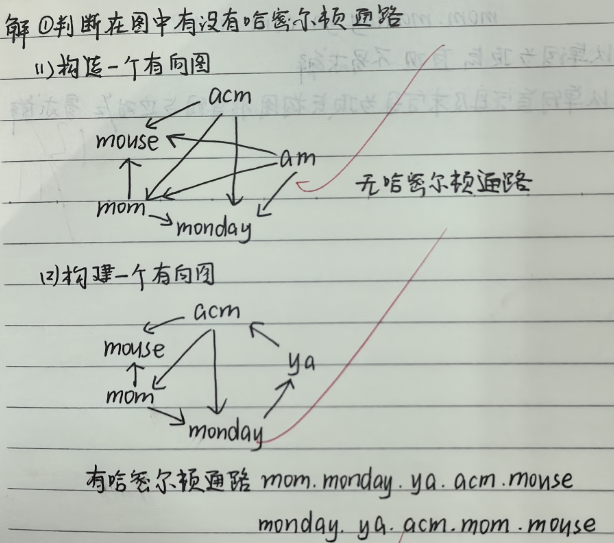 解 ①判断在图中有没有哈密尔顿通路
(1)构造一个有向图
acm
mouse
am
mom
monday
无哈密尔顿通路
(2)构建一个有向图
acm
mouse
ya
mom
monday
有哈密尔顿通路 mom.monday.ya.acm.mouse
monday.ya.acm.mom.mouse